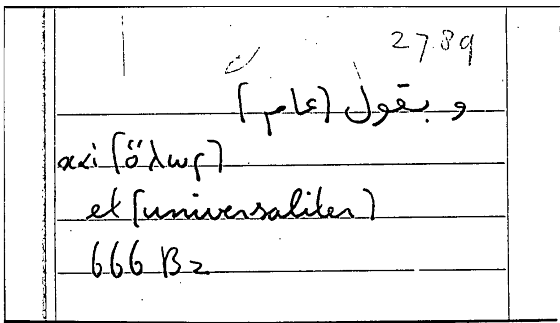 2789
وبقول [عام]
καὶ [ὅλως]
et [universaliter]
666 B2